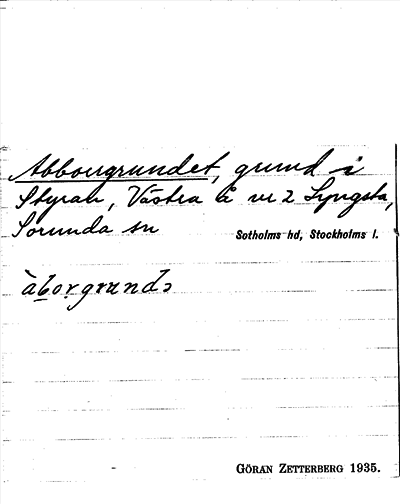 Abborrgrundet, grund i
Styran, Västra å nr 2 Lyngsta,
Sorunda sn
Sotholms hd, Stockholms l.
àbor̥grundə
GÖRAN ZETTERBERG 1935.